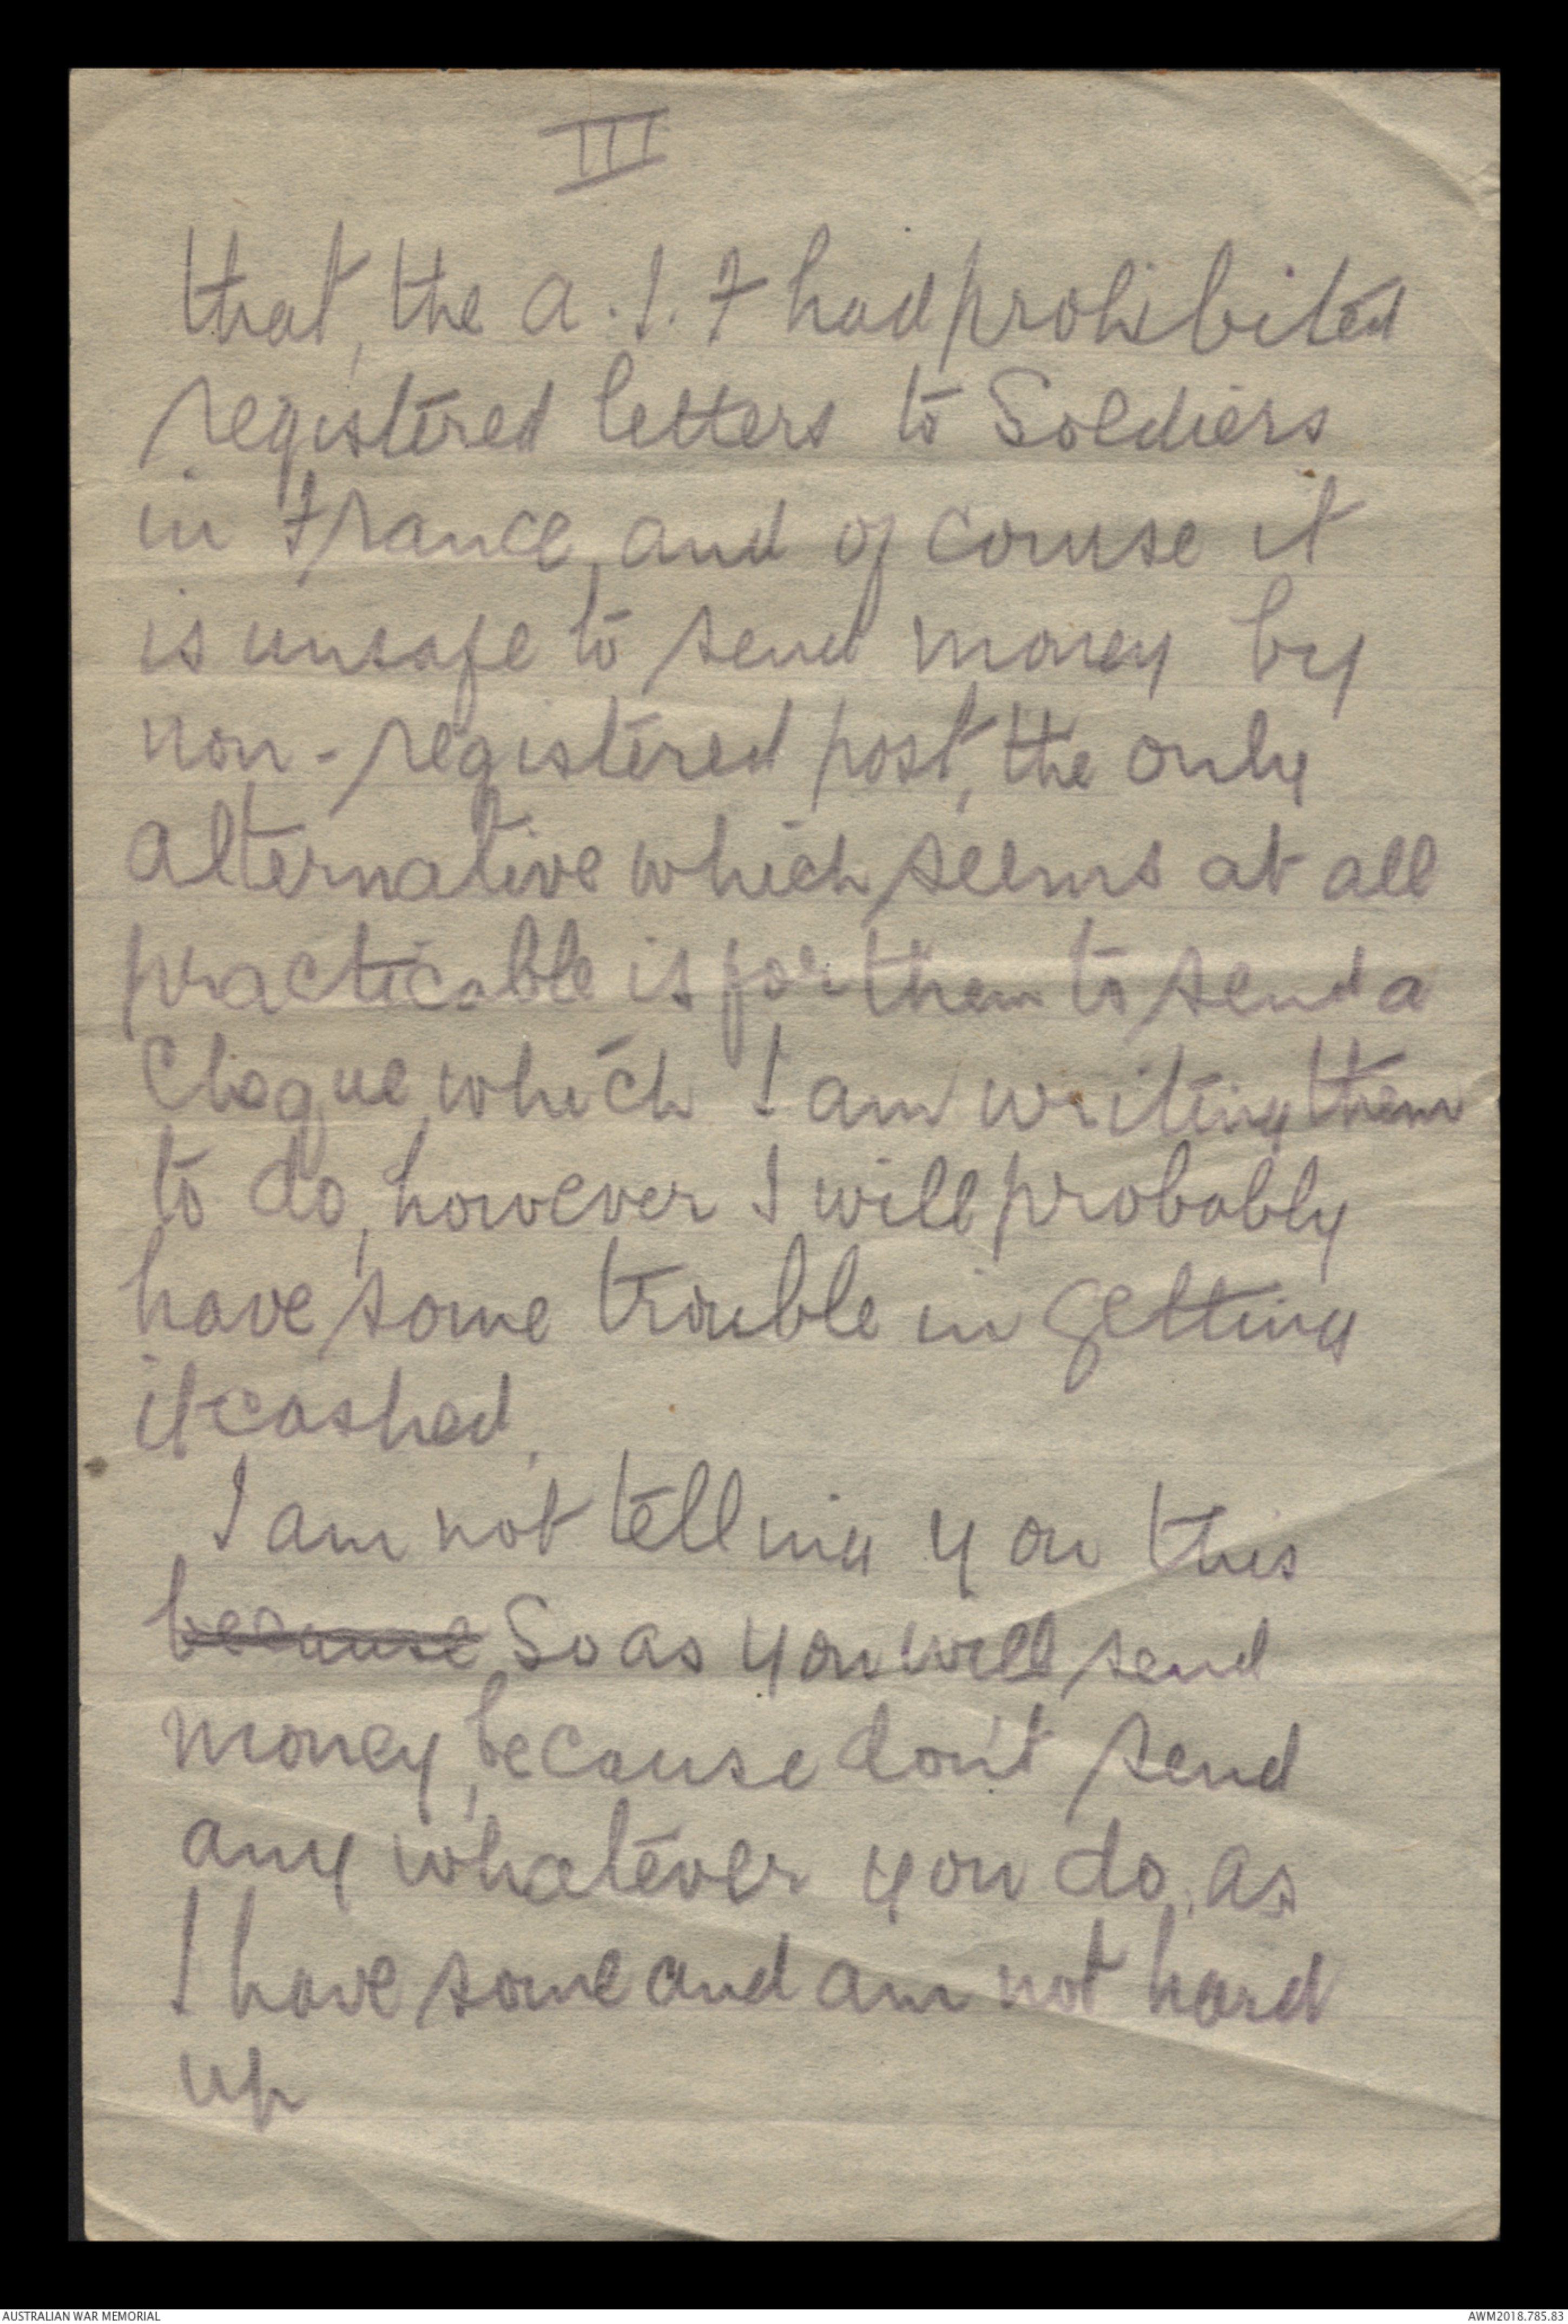 III
that, the A.I.F had prohibited
registered letters to Soldiers
in France, and of coruse it
is unsafe to send money by
non-registered post, the only
alternative which seems at all
practicable is for them to send a
Cheque, which I am writing them
to do, however I will probably
have some trouble in getting
it cashed.
I am not telling you this
because So as you will send
money, because don't send
any whatever you do, as
I have some and am not hard
up
AUSTRALIAN WAR MEMORIAL
AWM2018.785.83